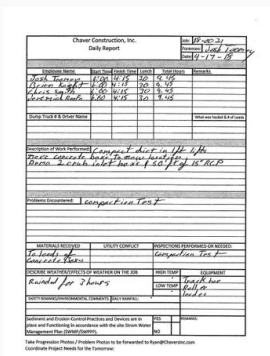 Chaver Construction, Inc.
Daily Report
Job: 18-2021
Foreman: Josh Toomey
Date: 9-17-18
Employee Name Start Time Finish Time Lunch Total Hours Remarks
Josh Toomey 6:00 4:15 30 9.45
Brian Knight 6:00 4:15 30 9.45
Chris Smith 6:00 4:15 30 9.45
Jeremiah 6:00 4:15 30 9.45
Dump Truck # & Driver Name What was hauled & # of Loads
Description of Work Performed: Compact dirt in 1ft lifts
Move concrete box to new location
Demo 2 curb inlet box & 50 ft of 15" RCP
Problems Encountered: Compaction Test
MATERIALS RECEIVED UTILITY CONFLICT INSPECTIONS PERFORMED OR NEEDED:
loads of Compaction Test
Concrete
DESCRIBE WEATHER/EFFECTS OF WEATHER ON THE JOB HIGH TEMP EQUIPMENT
Rained for 3 hours Track hoe
LOW TEMP Roller
loader
SAFETY REMARKS/ENVIRONMENTAL COMMENTS DAILY RAINFALL:
Sediment and Erosion Control Practices and Devices are in YES REMARKS:
place and Functioning in accordance with the site Storm Water
Management Plan (SWMP/SWPPP). NO
Take Progression Photos / Problem Photos to be forwarded to Ryan@Chaverinc.com
Coordinate Project Needs for the Tomorrow: